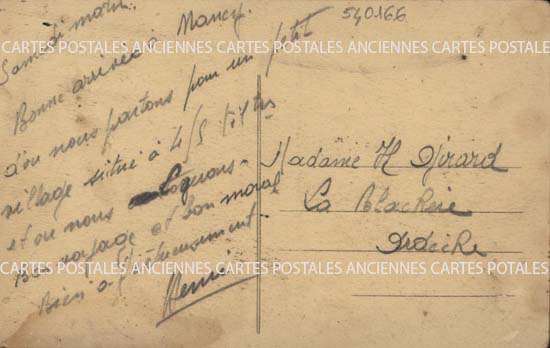 540166
Samedi matin.
Bonne arrivée à Nancy.
d'où nous partons pour un petit
village situé à 4/5 
et où nous logeons.
Bon voyage et bon moral
Bien affectueusement
Henri
Madame H Girard
La Blachère
Ardèche
CARTES POSTALES ANCIENNES CARTES POSTALES ANCIENNES CARTES POSTALES
CARTES POSTALES ANCIENNES CARTES POSTALES ANCIENNES CARTES POSTALES